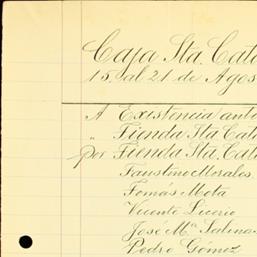 Caja Sta. Cata
15 al 21 de Agos
A Existencia ante
" Tienda Sta. Cata
por Tienda Sta. Cata
Faustino Morales
Tomás Mota
Vicente Licerio
Jose Mª Salina
Pedro Gómez